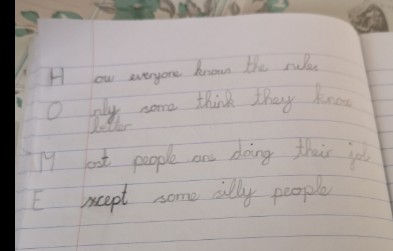 H ow everyone knows the rules
O nly some think they know
better
M ost people are doing their job
E xcept some silly people